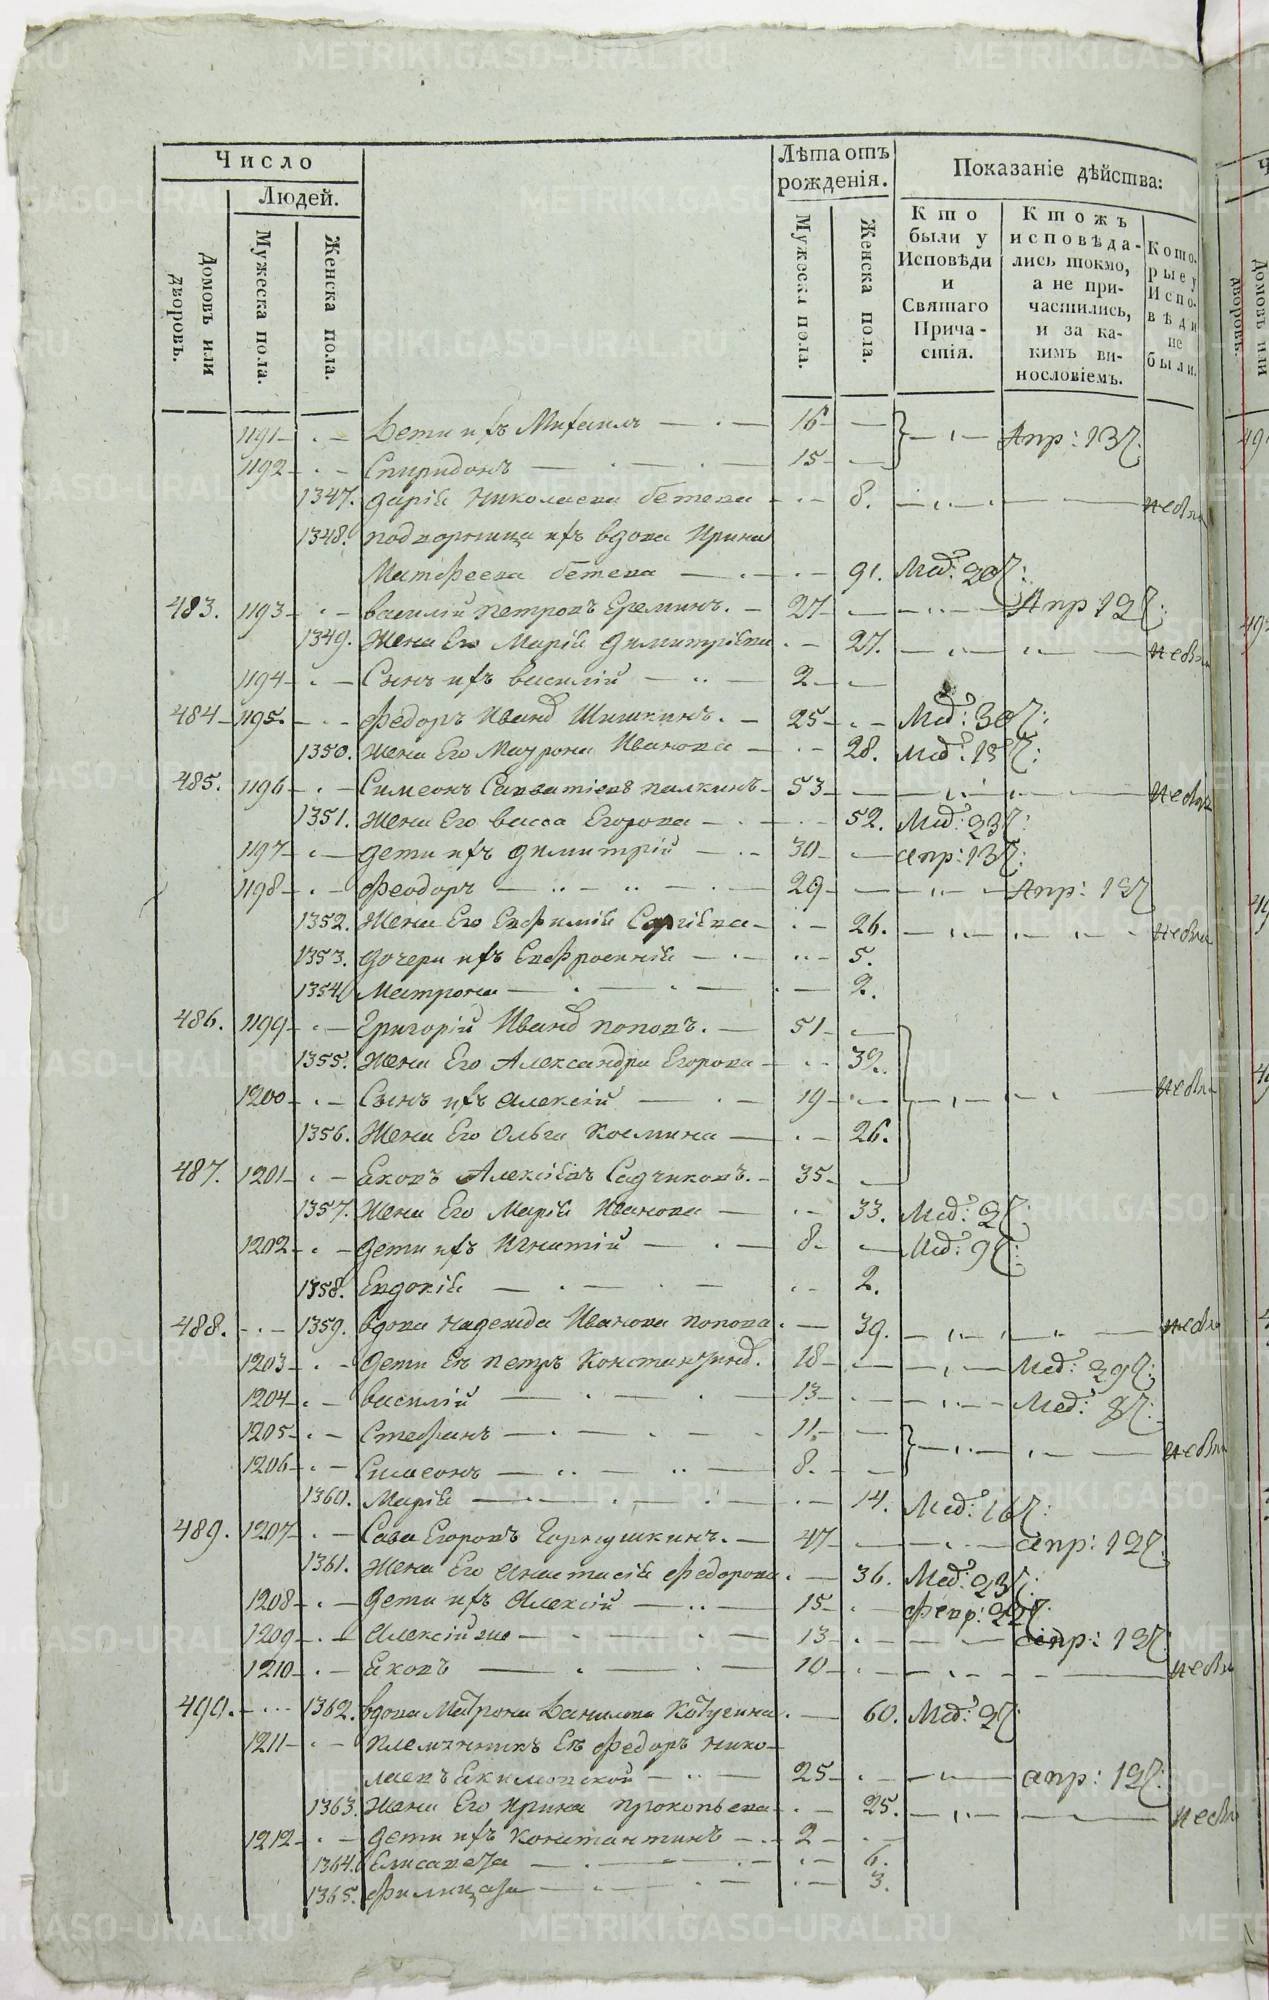 Число
Людей.
Домовъ или дворовъ.
Мужеска пола.
Женска пола.
Лѣта отъ рожденія.
Мужеска пола.
Женска пола.
Показаніе дѣйства:
Кто были у Исповѣди и Святаго Причастія.
Ктожъ исповѣдались токмо, а не причастились, и за какимъ винословіемъ.
Которые у Исповѣди не были.
1191 Дети ихъ Михаилъ 16 Апр: 13
1192 Спиридонъ 15
1347. Дарія Николаева бетева 8.
1348. подворница ихъ вдова Ирина
Матфеева бетева 91. Мар: 20
483. 1193 василій петровъ Ереминъ. 27 Апр 12
1349. Жена Его Марія Димитріева 27.
1194 Сынъ ихъ василій 2
484 1195. Федоръ Иванов Шишкинъ. 25 Мар: 30
1350. Жена Его Матрона Иванова 28. Мар:
485. 1196 Симеонъ Савватіевъ палкинъ 53
1351. Жена Его васса Егорова 52. Мар: 23
1197 дети ихъ Димитрій 30 апр: 13
1198 Феодоръ 29 Апр:
1352. Жена Его Евфимія Сергіева 26.
1353. дочери ихъ Евфросинія 5.
1354 Матрона 2.
486. 1199 Григорій Иванов поповъ. 51
1355. Жена Его Александра Егорова 39.
1200 Сынъ ихъ Алексій 19
1356. Жена Его Ольга Космина 26.
487. 1201 Яковъ Алексіевъ Садчиковъ. 35
1357. Жена Его Марія Иванова 33. Мар: 2
1202 дети ихъ Игнатій 8 Мар: 9
1358. Евдокія 2.
488. 1359. вдова Надежда Иванова попова. 39.
1203 Дети Ея петръ Константинов. 18 Мар: 29
1204 василій 13 Мар: 8
1205 Стефанъ 11.
1206 Симеонъ 8.
1360. Марія 14. Мар: 16
489. 1207 Сава Егоровъ 47 апр: 12
1361. Жена Его Анастасія Федорова 36. Мар: 23
1208 Дети ихъ Алексій 15 февр: 22
1209 Алексій же 13 апр: 13
1210 Яковъ 10
490. 1362. вдова Матрона Данилова Котугина 60. Мар: 2
1211 племянникъ Ея Федоръ Нико-
лаевъ Екимовской 25 апр: 12
1363. Жена Его Ирина прокопьева 25.
1212 дети ихъ Константинъ 2
1364. Елисавета 6.
1365. Филицата 3.
METRIKI.GASO-URAL.RU